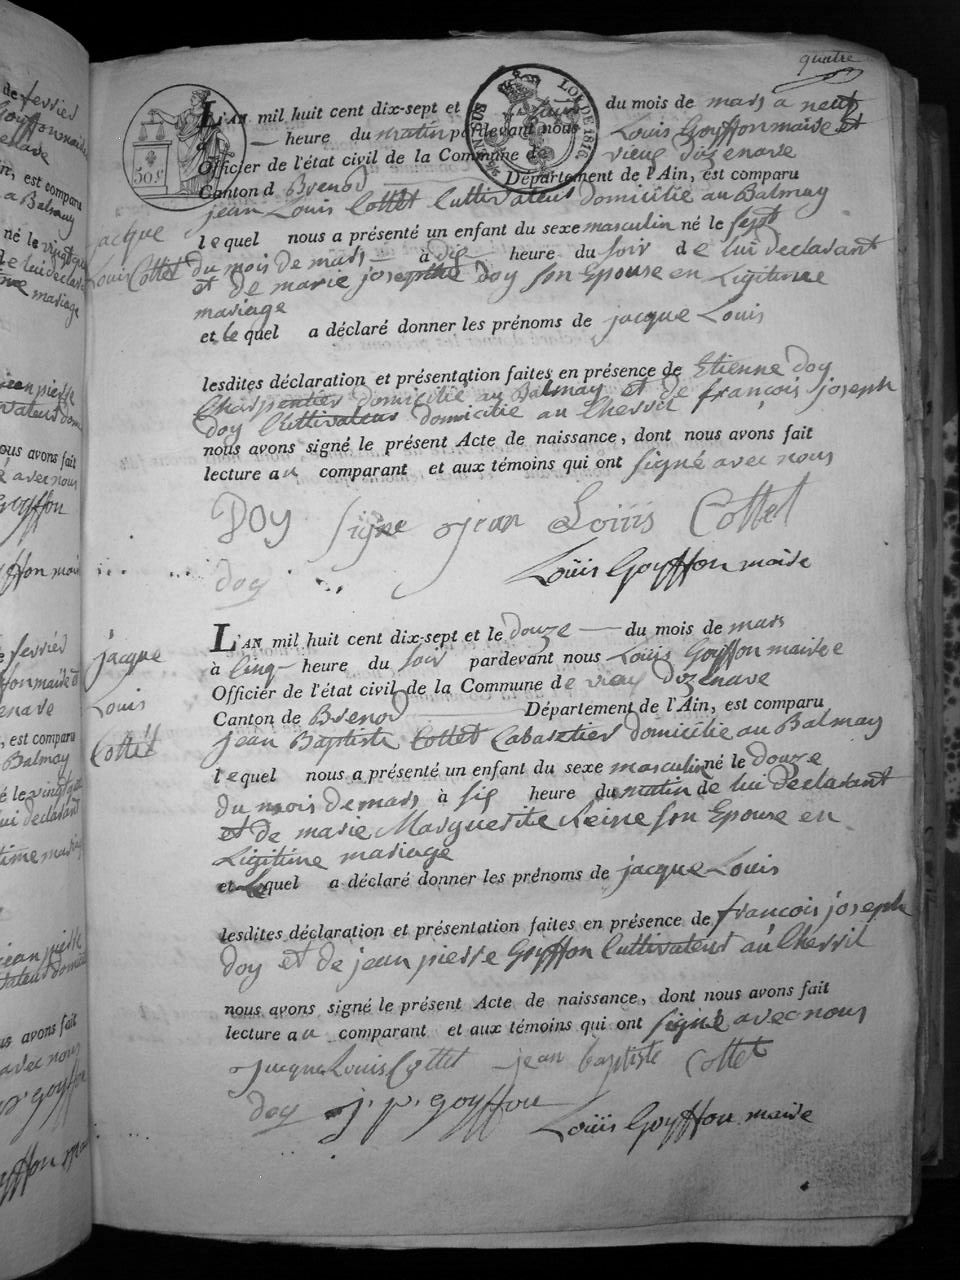 quatre
L'AN mil huit cent dix-sept et du mois de mars a neuf
heure du matin pardevant nous Louis Goyffon maire et
Officier de l'état civil de la Commune de vieux dizenave
Canton d Brenod Département de l'Ain, est comparu
jean Louis Cottet Cultivateur domicilié au Balmay
lequel nous a présenté un enfant du sexe masculin né le sept
du mois de mars à dix heure du soir de lui declarant
et de marie josephte doy son Epouse en Ligitime
mariage
et le quel a déclaré donner les prénoms de jacque Louis
lesdites déclaration et présentation faites en présence de Etienne doy
Charpentier domicilié au Balmay et de françois joseph
doy Cultivateur domicilié au Chevril
nous avons signé le présent Acte de naissance, dont nous avons fait
lecture au comparant et aux témoins qui ont signé avec nous
Doy signe jean Louis Cottet
doy
Louis Goyffon maire
jacque
Louis Cottet
L'AN mil huit cent dix-sept et le douze du mois de mars
à Cinq heure du soir pardevant nous Louis Goyffon maire e
Officier de l'état civil de la Commune de vieux dizenave
Canton de Brenod Département de l'Ain, est comparu
jean Baptiste Cottet Cabaretier domicilié au Balmay
lequel nous a présenté un enfant du sexe masculin né le douze
du mois de mars à six heure du matin de lui declarant
et de marie Marguerite Reine son Epouse en
Ligitime mariage
et le quel a déclaré donner les prénoms de jacque Louis
lesdites déclaration et présentation faites en présence de francois joseph
doy et de jean pierre Goyffon Cultivateurs au Chevril
nous avons signé le présent Acte de naissance, dont nous avons fait
lecture au comparant et aux témoins qui ont signé avec nous
jacque Louis Cottet jean baptiste Cottet
doy j. p. goyffon Louis Goyffon maire
jacque
Louis
Cottet
50c
LOI DE 1816.